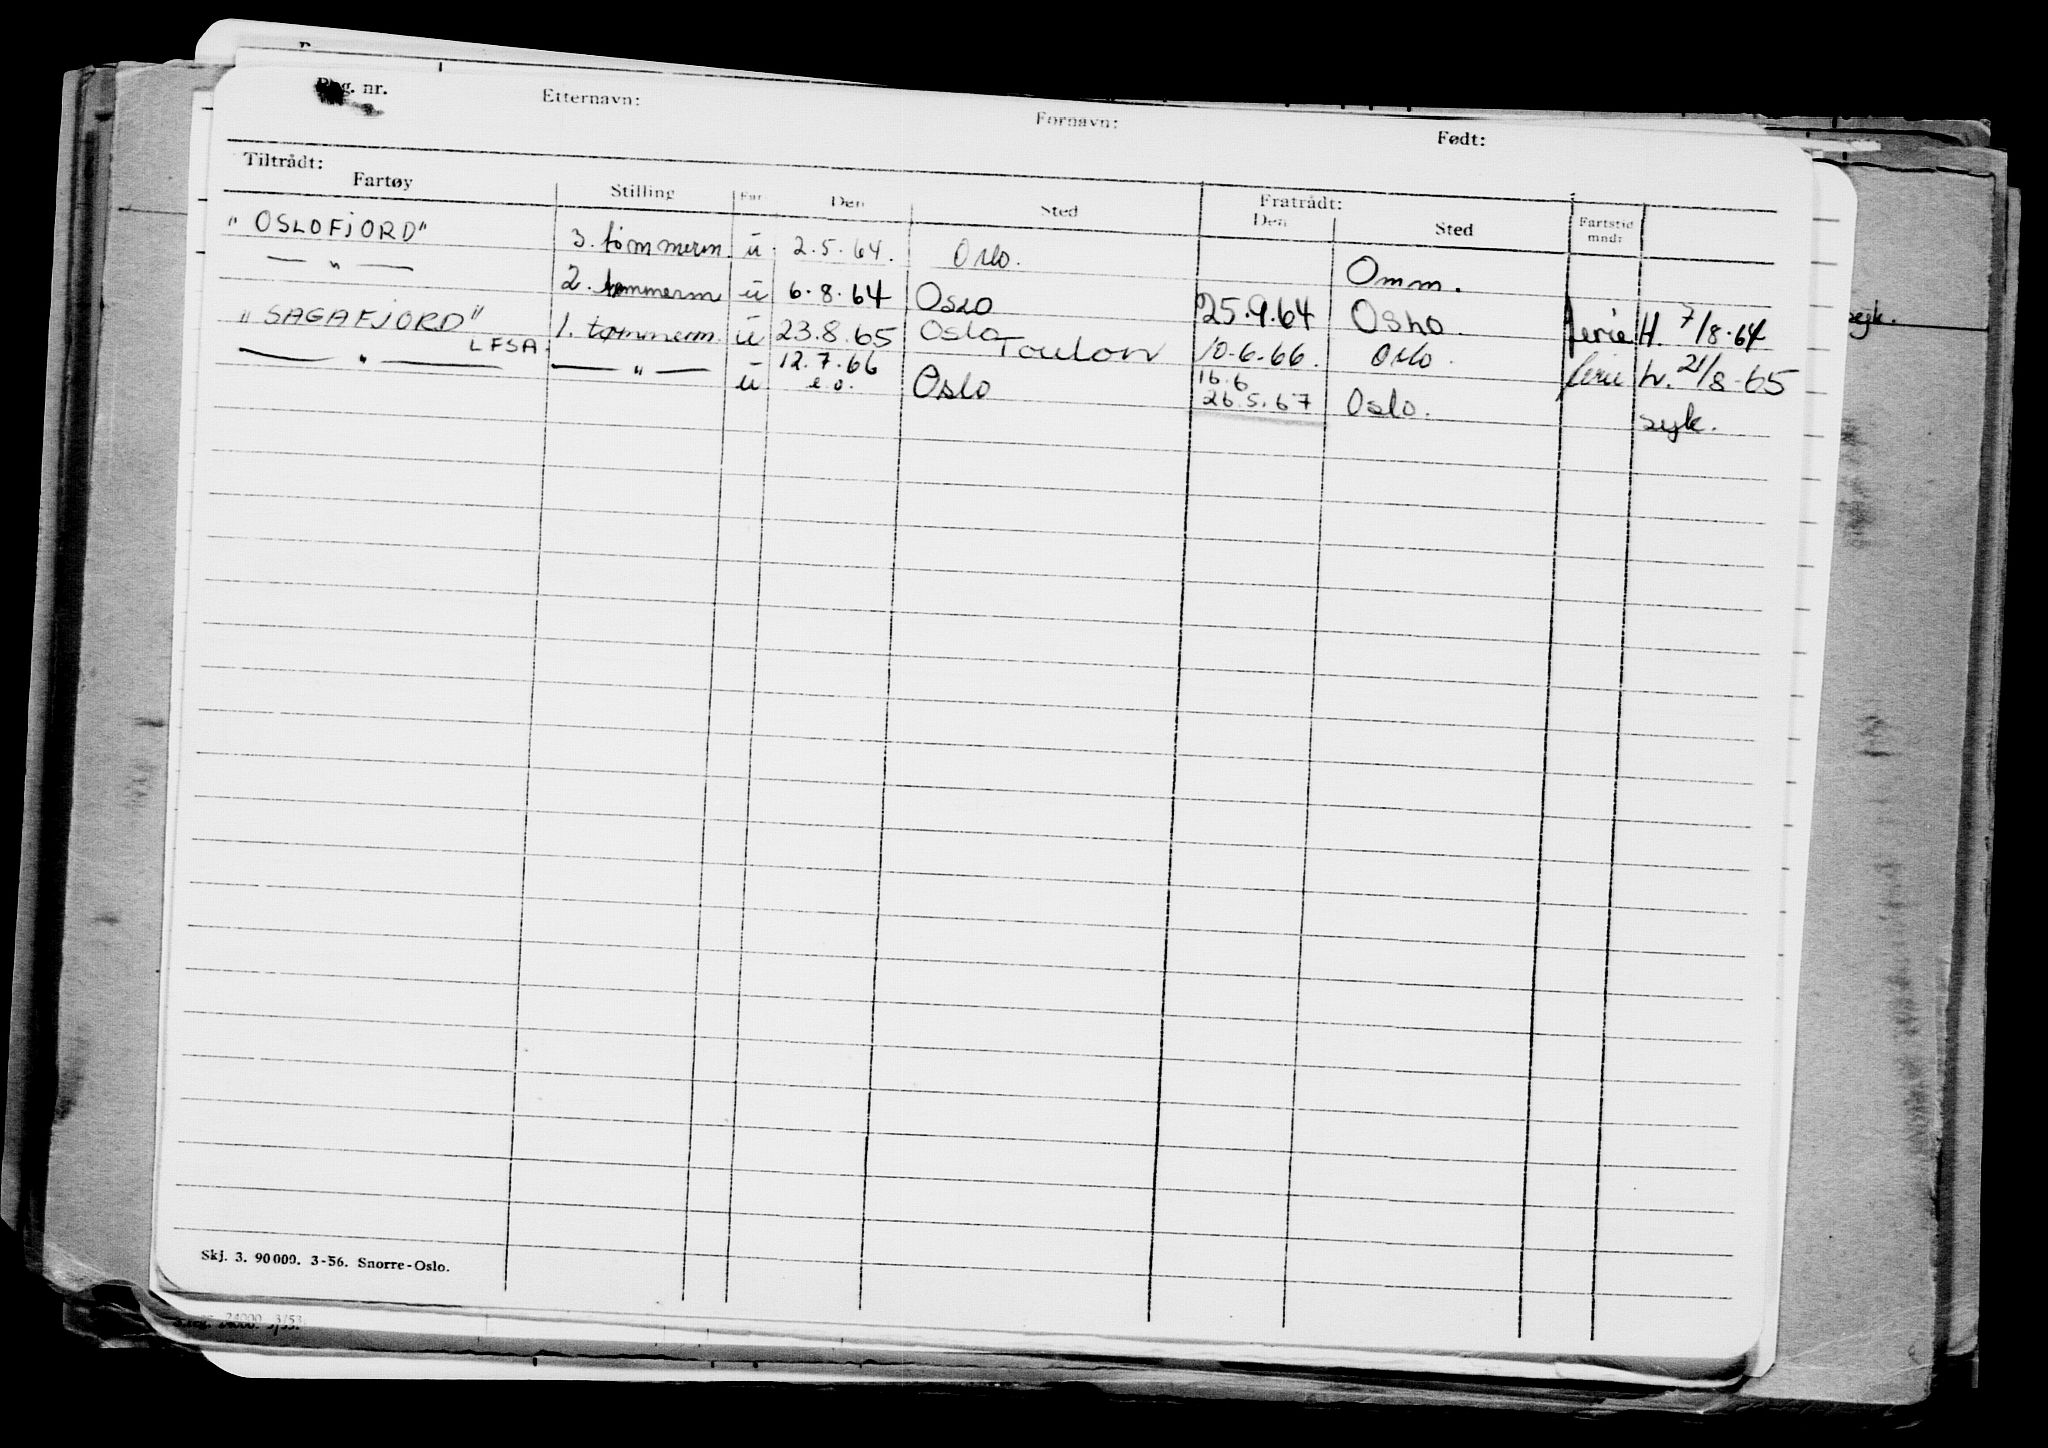 Reg. nr. Etternavn: Fornavn: Født:
Tiltrådt: Fratrådt:
Fartøy Stilling Far Den Sted Den Sted Fartstid mndr
"OSLOFJORD" 3. tømmerm. u 2.5.64. Oslo. Omm.
— " — 2. tømmerm u 6.8.64 Oslo 25.9.64 Oslo ferie H. 7/8-64
"SAGAFJORD" 1. tømmerm. u 23.8.65 Oslo Toulon 10.6.66. Oslo. ferie h. 21/8-65
LFSA. 12.7.66 16.6
— " — — " — u e.o. Oslo 26.5.67 Oslo. syk.
syk.
Skj. 3. 90000. 3-56. Snorre-Oslo.
24000. 3/53.